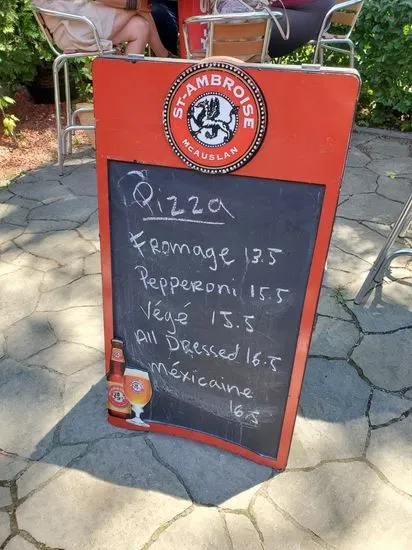 ST-AMBROISE
McAUSLAN
Pizza
Fromage 13.5
Pepperoni 15.5
Végé 15.5
All Dressed 16.5
Méxicaine
16.5